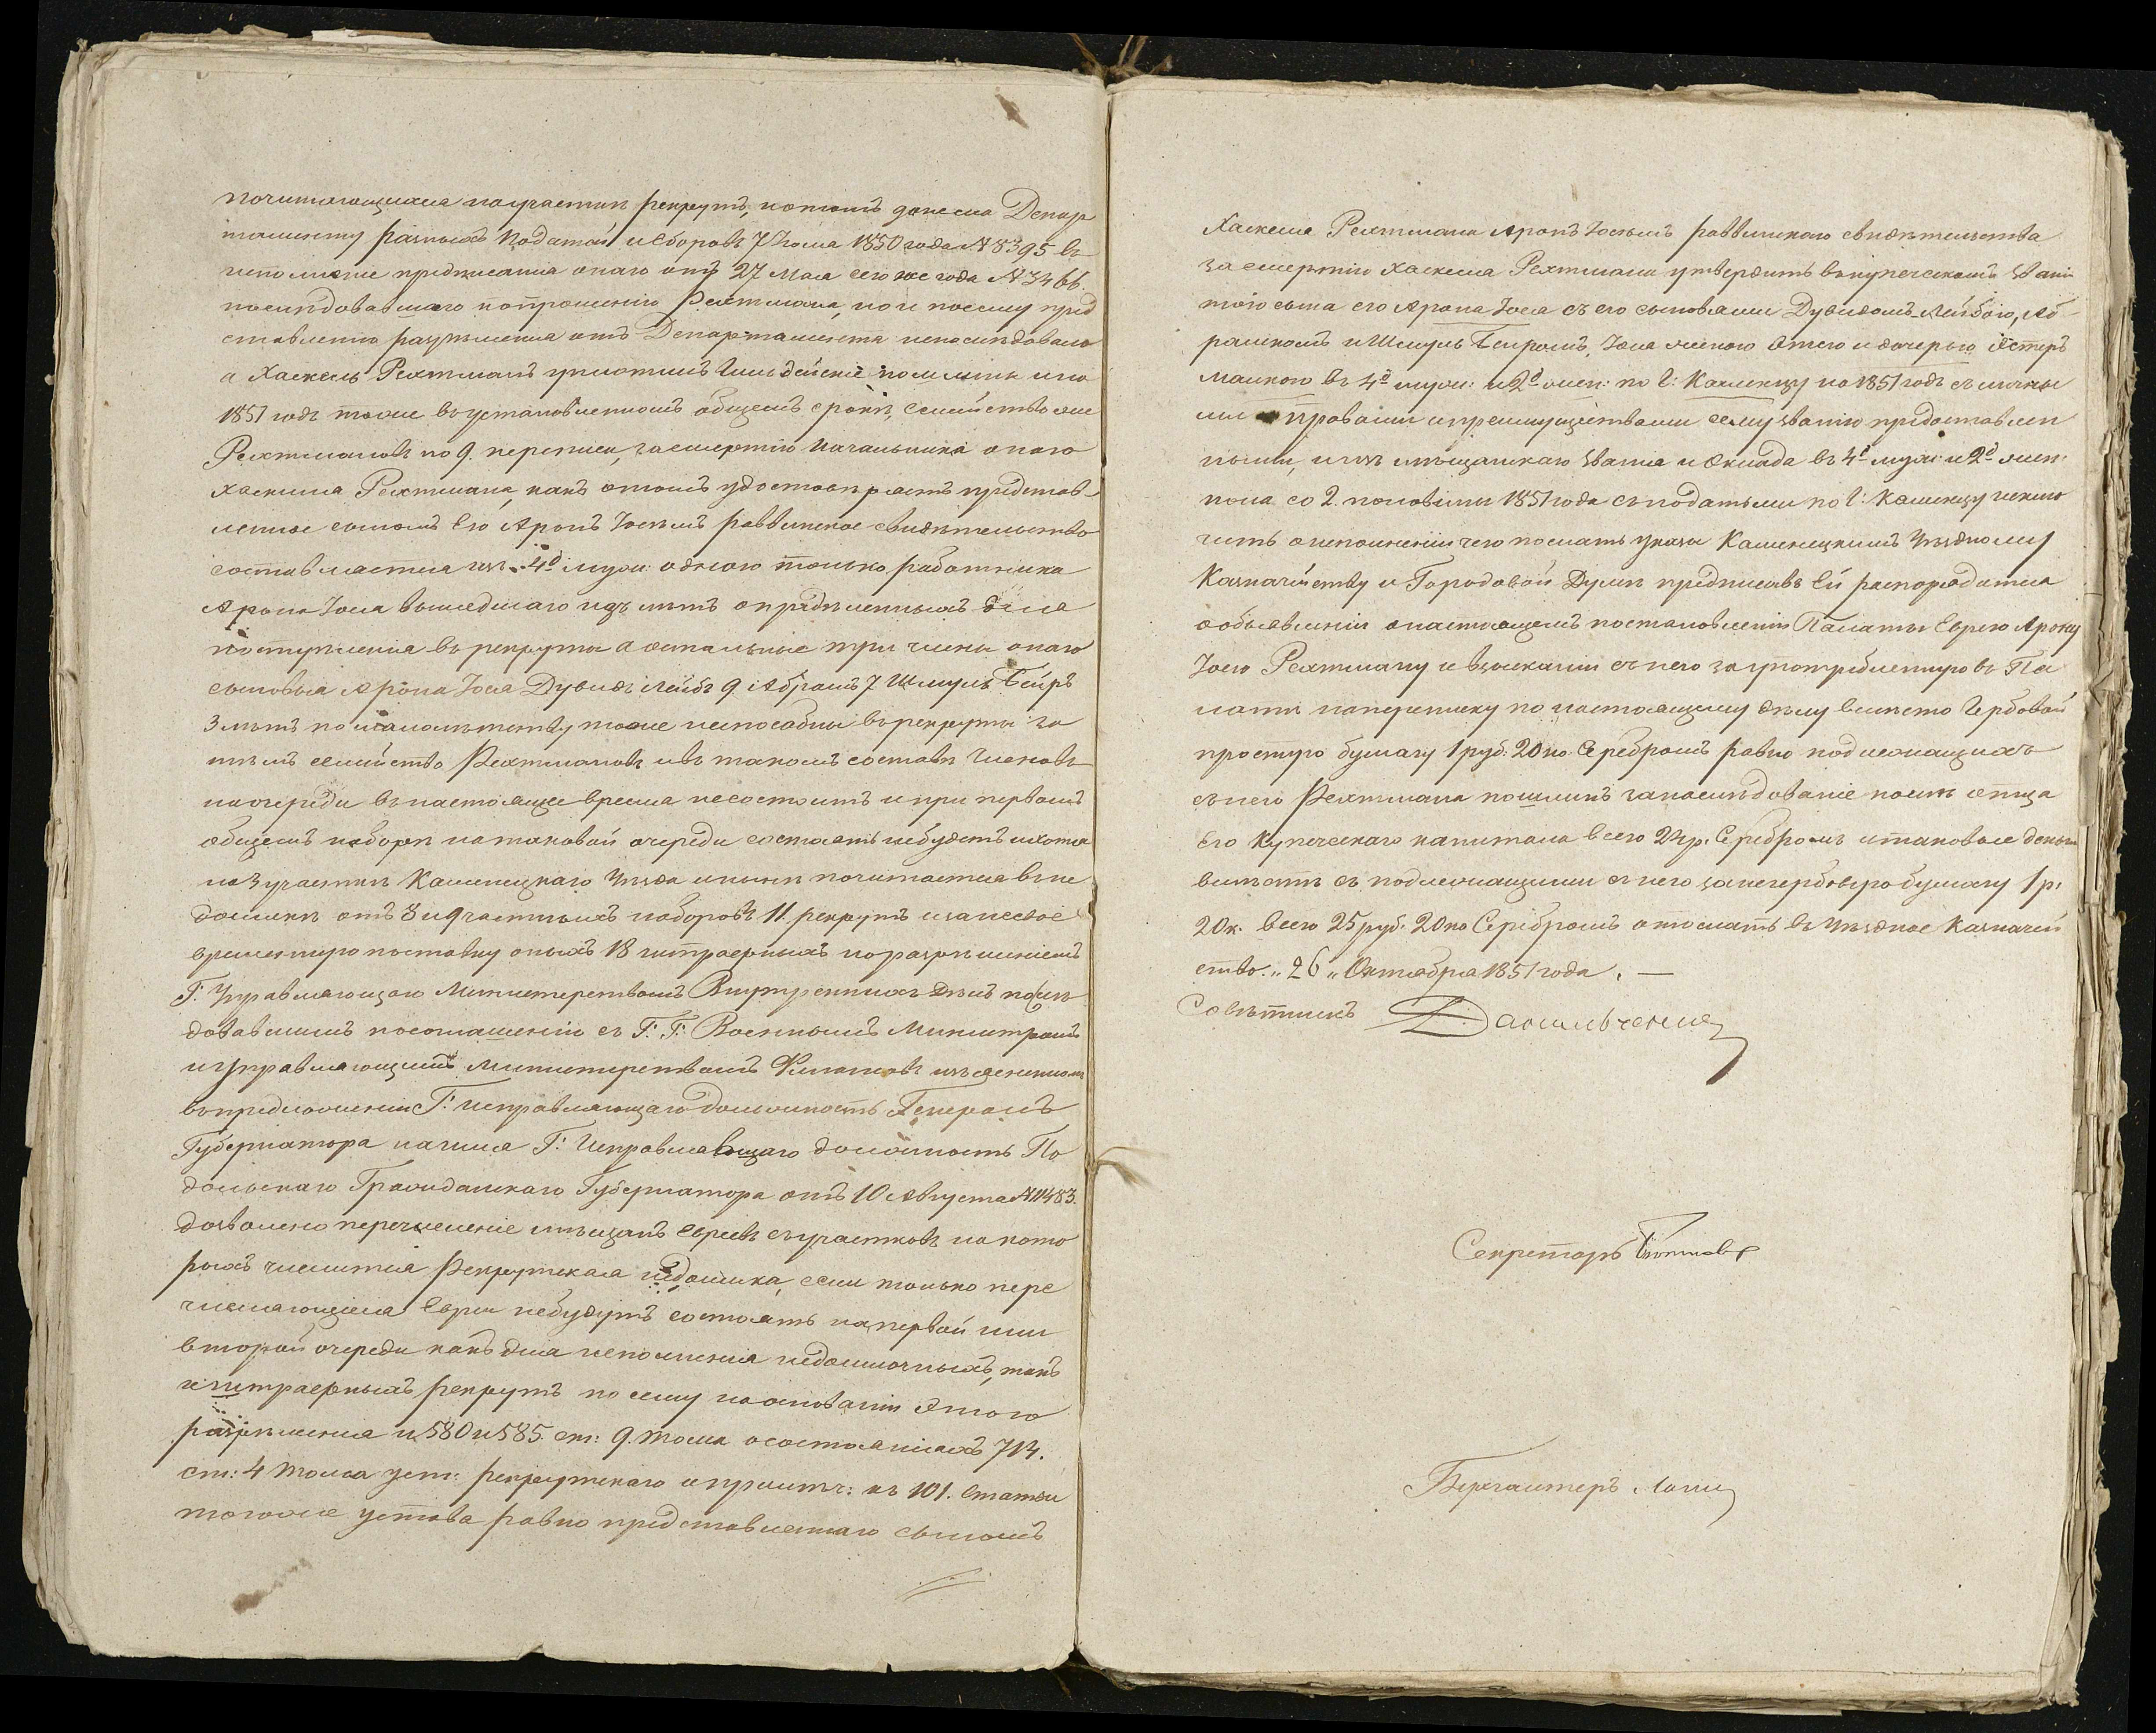 почитающихся на участкѣ рекрутъ, о томъ донесла Депар
таменту разныхъ Податей и Сборовъ 7 Іюля 1850 года № 8395 въ
исполненіе предписанія онаго отъ 27 Мая сего же года № 3466.
послѣдовавшаго по прошенію Рехтмана, но и по сему пред
ставленію разрѣшенія отъ Департамента не послѣдовало
а Хаскель Рехтманъ уплотилъ Гильдейскіе пошлины и по
1851 годъ тоже въ установленномъ общемъ срокѣ, Семейство же
Рехтмановъ по 9. переписи, за смертію начальника онаго
Хаскеля Рехтмана, какъ о томъ удостовѣряетъ представ-
ленное сыномъ Его Арономъ Іосемъ раввинское свидѣтельство
составляется изъ 4д муж: одного только работника
Арона Іося вышедшаго изъ лѣтъ опредѣленныхъ для
поступленія въ рекруты а остальные три члены онаго
сыновья Арона Іося Дувидъ Лейбъ 9. Абрамъ 7. Шмуль Беиръ
3 лѣтъ по малолѣтству тоже неспособны въ рекруты за
тѣмъ семейство Рехтмановъ и въ такомъ составѣ Членовъ
на очереди въ настоящее время не состоитъ и при первомъ
общемъ наборѣ на таковой очереди состоять небудетъ и хотя
на 3 участкѣ Каменецкаго Уѣзда и нынѣ почитается въ не
доимкѣ отъ 8 и 9 частныхъ наборовъ 11. рекрутъ и за несвое
временную поставку оныхъ 18 штрафныхъ но разрѣшеніемъ
Г. Управляющаго Министерствомъ Внутреннихъ Дѣлъ послѣ
довавшимъ по соглашенію съ Г. Г. Военнымъ Министромъ
и управляющимъ Министерствомъ Финансовъ изъясненномъ
въ предложеніи Г. исправляющаго должность Генералъ
Губернатора на имя Г. Исправляющаго должность По
дольскаго Гражданскаго Губернатора отъ 10 Августа № 11483.
дозволено перечисленіе мѣщанъ Евреевъ съ участковъ на кото
рыхъ числится Рекрутская недоимка, если только пере
числяющіеся Евреи небудутъ состоять на первой или
второй очереди какъ для исполненія недоимочныхъ, такъ
и штрафныхъ рекрутъ по сему на основаніи этого
разрѣшенія и 580 и 585. ст: 9. Тома о состояніяхъ 714.
ст: 4 Тома уст: рекрутскаго и примѣч: къ 101. Статьи
того же устава равно представленнаго сыномъ
Хаскеля Рехтмана Арономъ Іосемъ раввинскаго свидѣтельства
за смертію Хаскеля Рехтмана утвердить въ купеческомъ зваи
тою сына его Арона Іося съ его сыновьями Дувидомъ-Лейбою, Аб-
рамкомъ и Шмуль Беиромъ, Іося женою Этею и дочерью Эстеръ
Малкою въ 4д муж: и 2д жен: по Г: Каменцу на 1851 годъ съ личны
ми правами и преимуществами сему званію предоставлен
ными, и изъ мѣщанскаго званія и Оклада въ 4д муж: и 2д жен:
пола со 2. половины 1851 года съ податьми по Г: Каменцу исклю
чить о исполненіи чего послать указы Каменецкимъ Уѣздному
Казначейству и Городовой Думѣ предписавъ Ей распорядится
о объявленіи о настоящемъ постановленіи Палаты Еврею Арону
Іосю Рехтману и взысканіи съ него за употребленную въ Па
латѣ на переписку по настоящему дѣлу вмѣсто Гербовой
простую бумагу 1 руб: 20 ко. Серебромъ равно подлежащихъ
съ него Рехтмана пошлинъ за наслѣдованіе послѣ отца
его Купеческаго капитала всего 24 р. Серебромъ и таковые деньги
вмѣстѣ съ подлежащими съ него за негербовую бумагу 1 р.
20 к. всего 25 руб. 20 ко Серебромъ отослать въ Уѣздное Казначей
ство. „26„ Октября 1851 года. —
Совѣтникъ Данильченко
Секретарь
Бухгалтеръ